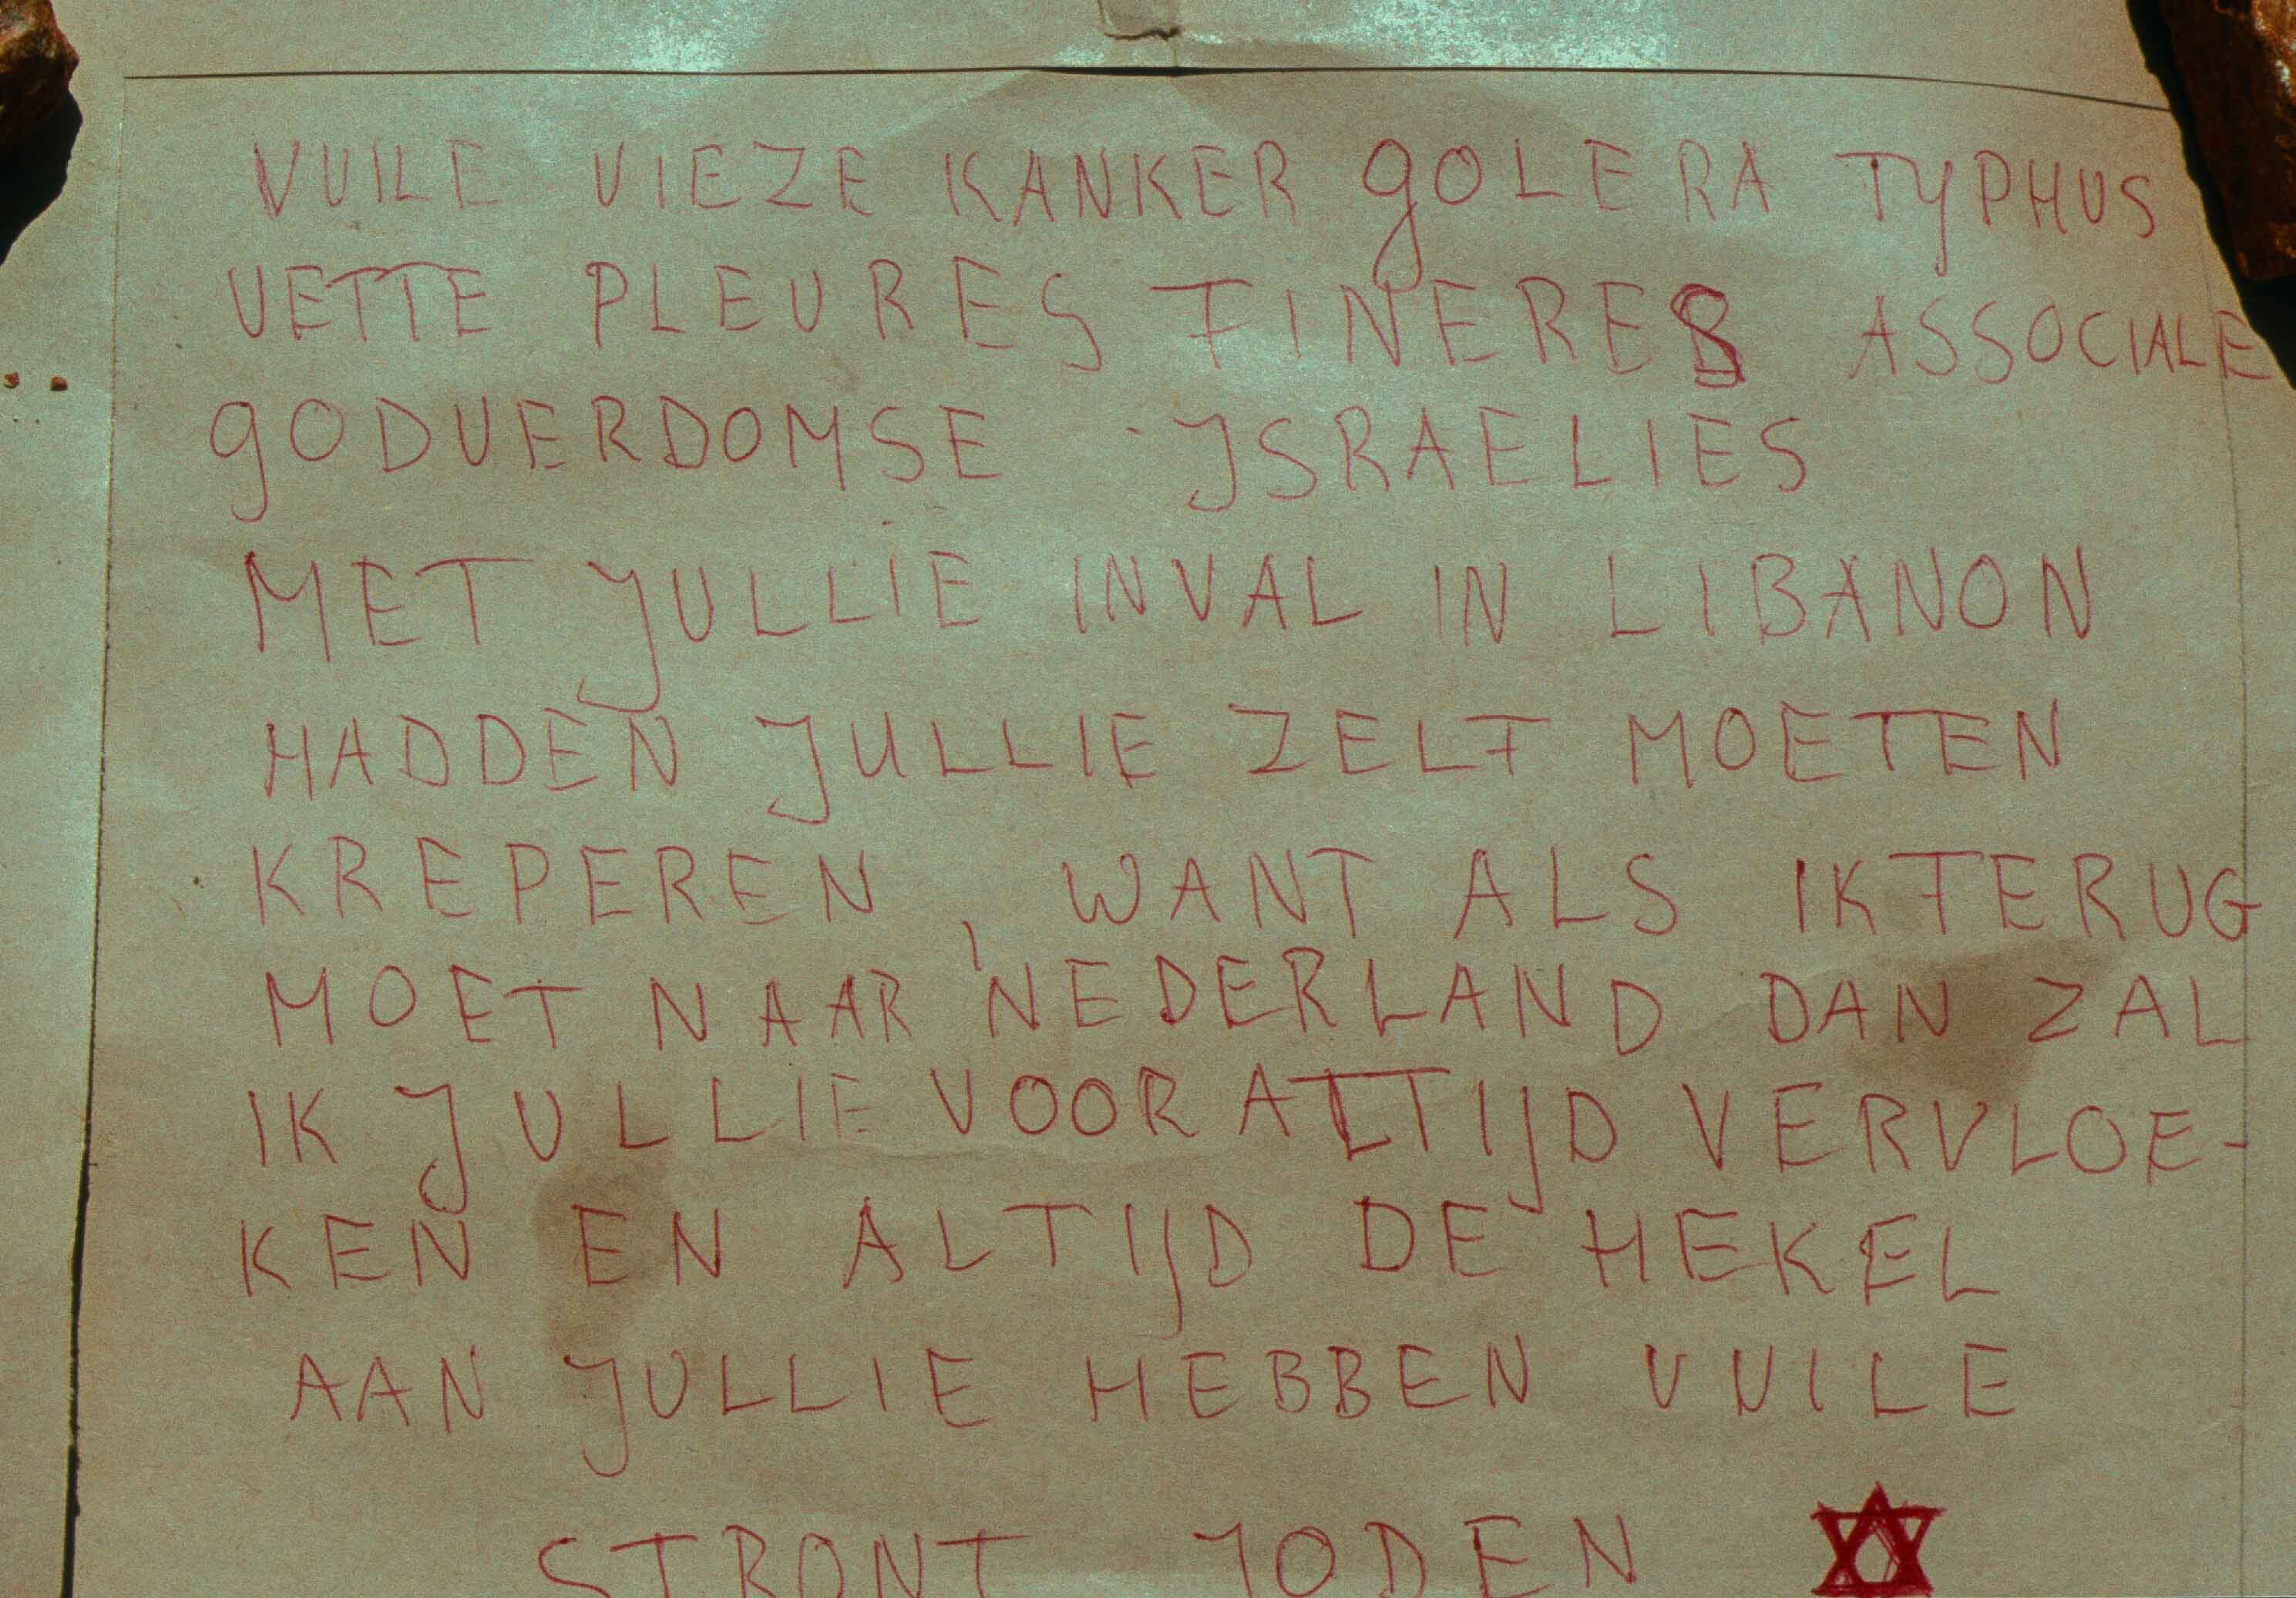 VUILE VIEZE KANKER GOLERA TYPHUS
VETTE PLEURES FINERES ASSOCIALE
GODVERDOMSE ISRAELIES
MET JULLIE INVAL IN LIBANON
HADDEN JULLIE ZELF MOETEN
KREPEREN, WANT ALS IK TERUG
MOET NAAR NEDERLAND DAN ZAL
IK JULLIE VOOR ALTIJD VERVLOE-
KEN EN ALTIJD DE HEKEL
AAN JULLIE HEBBEN VUILE
STRONT JODEN